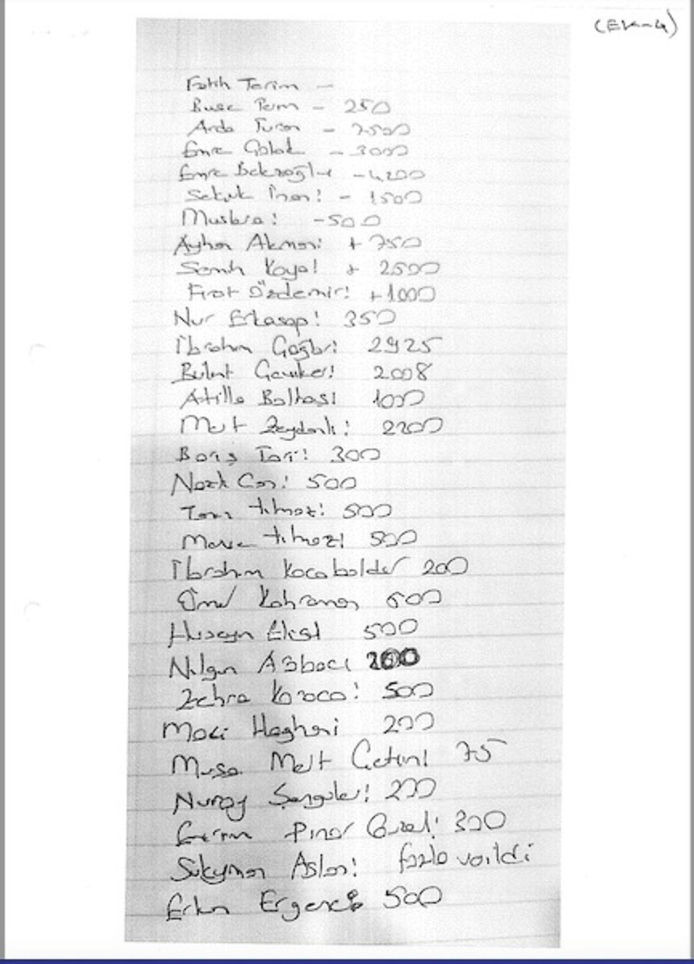 (Ek-4)
Fatih Terim -
Buse Terim - 250
Arda Turan - 7500
Emre Çolak - 3000
Emre Belezoğlu - 4200
Selçuk İnan! - 1500
Muslera! - 500
Ayhan Akman! + 750
Semih Kaya! + 2500
Fırat Özdemir! + 1000
Nur Erkasap! 350
İbrahim Çağlar! 2925
Bülent Çeviker! 2008
Atilla Baltaş! 1000
Mert Zeydanlı! 2200
Barış Tari! 300
Nazlı Can! 500
Tanın Yılmaz! 500
Merve Yılmaz! 500
İbrahim Kocabalder 200
Ömer Kahraman 600
Huseyn Eksi 500
Nilgun Ağbacı 200
Zehra Karaca! 500
Haghani 200
Musa Mert Çetin! 75
Nuray Sengüler! 200
Pınar 300
Süleyman Aslan! fazla verildi
Erkan Ergen 500